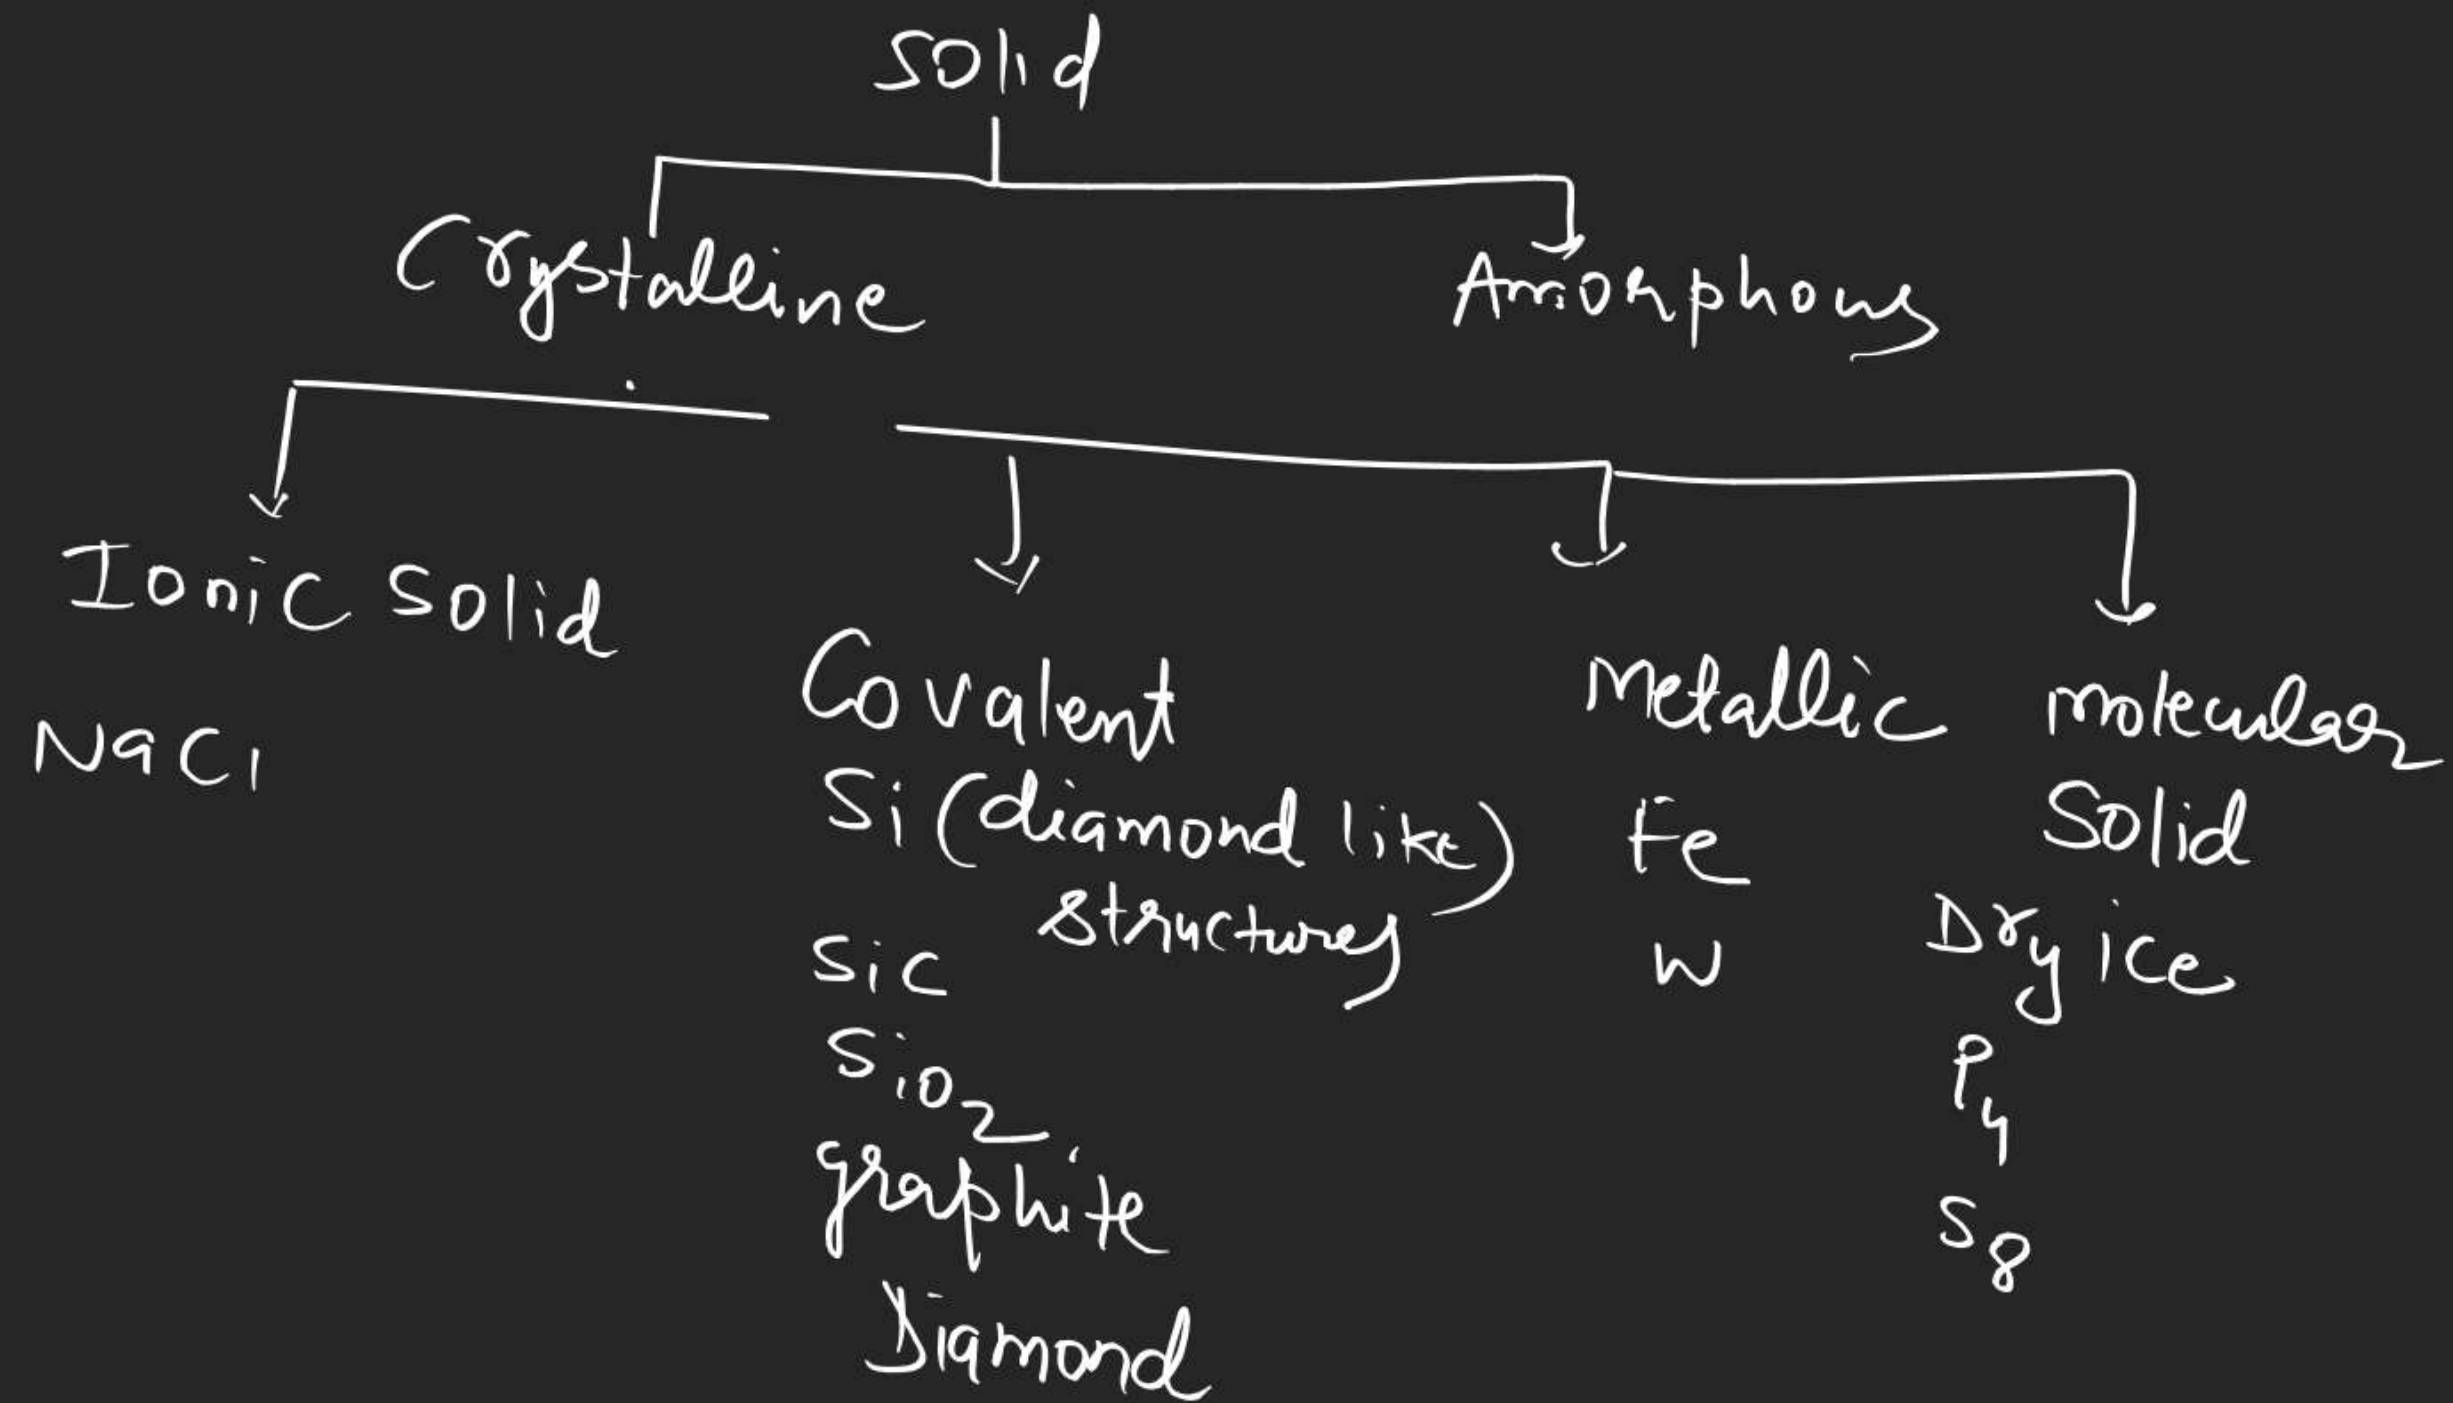 Solid
Crystalline
Amorphous
Ionic Solid
NaCl
Covalent
Si (diamond like)
structures
SiC
SiO2
graphite
Diamond
Metallic
Fe
W
molecular
Solid
Dry ice
P4
S8